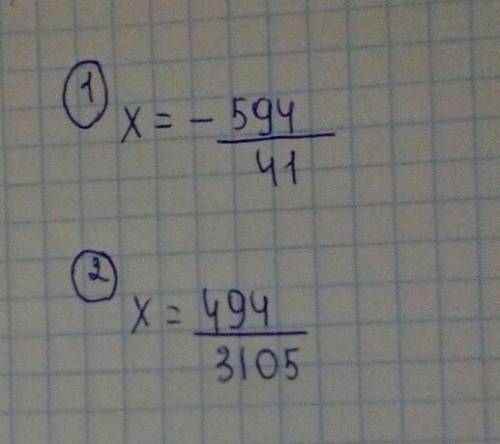 1
x = - 594
41
2
x = 494
3105